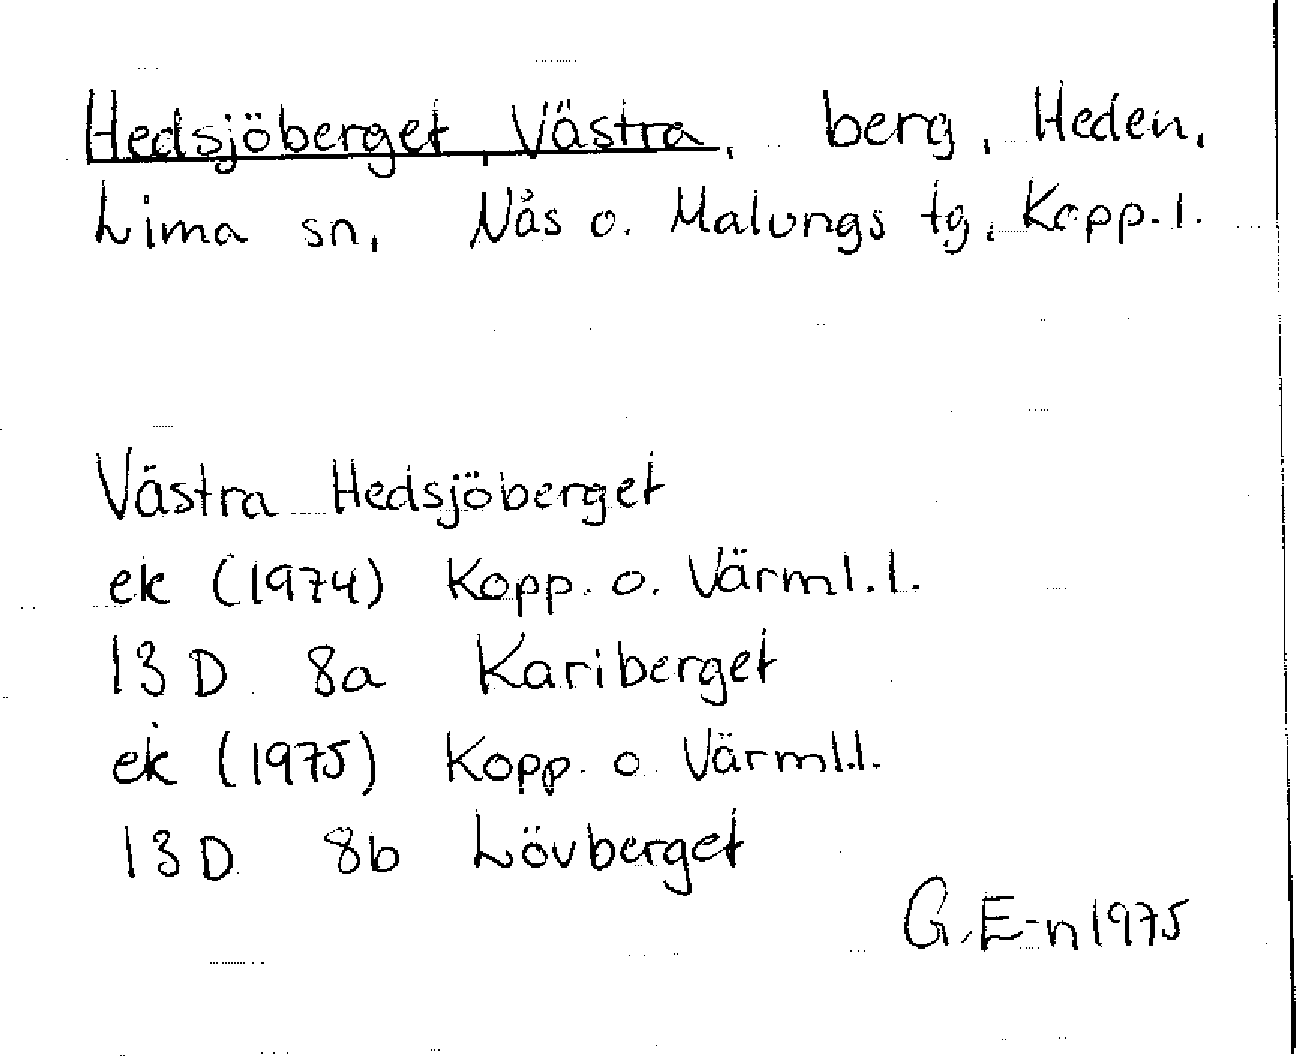 Hedsjöberget, Västra, berg, Heden,
Lima sn, Nås o. Malungs tg, Kopp. l.
Västra Hedsjöberget
ek (1974) Kopp. o. Värml. l.
13 D 8a Kariberget
ek (1975) Kopp. o Värml.l.
13 D 8b Lövberget
G. E-n 1975